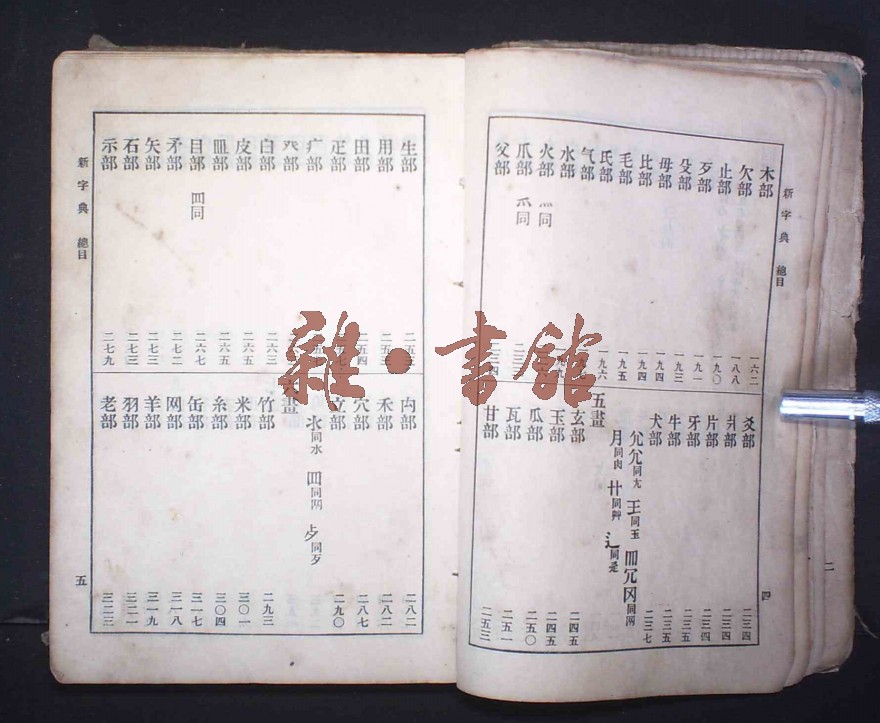 新字典 總目
木部 一六二
欠部 一八八
止部 一九〇
歹部 一九一
殳部 一九三
毋部 一九四
比部 一九四
毛部 一九五
氏部 一九六
气部
水部
火部 灬同
爪部 爫同
父部
爻部 二三四
爿部 二三四
片部 二三四
牙部 二三五
牛部 二三五
犬部 二三七
允尣同尢 王同玉 罒冗冈同网
月同肉 廾同艸 辶同辵
五畫
玄部 二四五
玉部 二四五
瓜部 二五〇
瓦部 二五一
甘部 二五二
四
二
新字典 總目
生部
用部
田部 二五四
疋部
疒部
癶部
白部 二六三
皮部 二六五
皿部 二六五
目部 罒同 二六七
矛部 二七二
矢部 二七三
石部 二七三
示部 二七九
禸部 二八二
禾部 二八二
穴部 二八七
立部 二九〇
氺同水 罒同网 歺同歹
六畫
竹部 二九三
米部 三〇一
糸部 三〇四
缶部 三一七
网部 三一八
羊部 三一九
羽部 三二一
老部 三二三
五
雜·書館